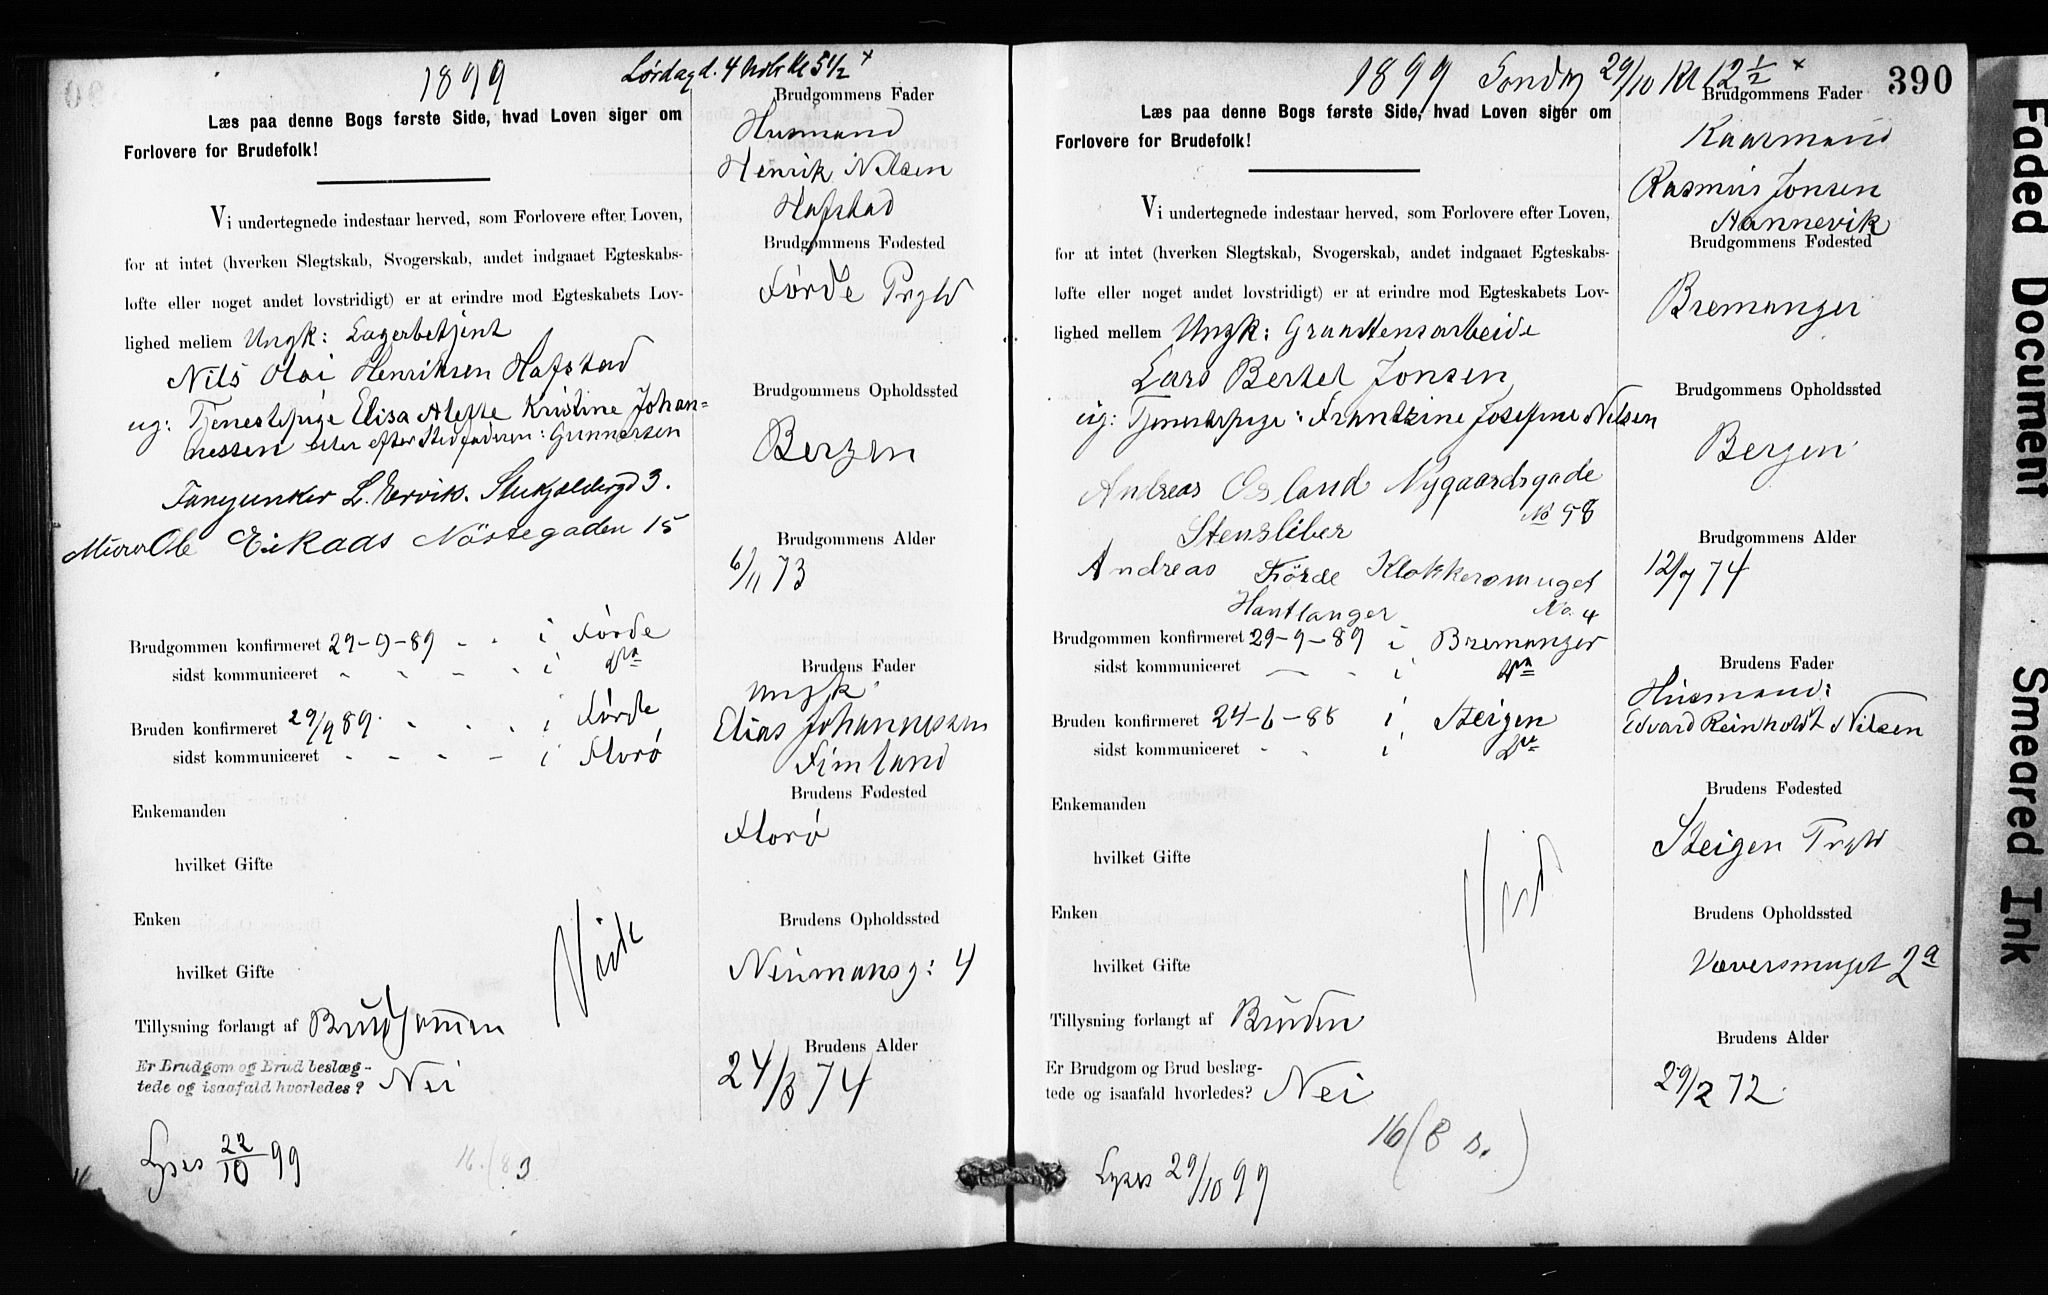 1899
Lørdag d. 4 Kl 5 1/2 +
Læs paa denne Bogs første Side, hvad Loven siger om
Forlovere for Brudefolk!
Vi undertegnede indestaar herved, som Forlovere efter Loven,
for at intet (hverken Slegtskab, Svogerskab, andet indgaaet Egteskabs-
løfte eller noget andet lovstridigt) er at erindre mod Egteskabets Lov-
lighed mellem Ungk: Lagerbetjent
Nils Olai Henriksen Hafstad
og: Tjenestepige Elisa Alette Kristine Johan=
nessen eller efter Stedfaderen: Gunnersen
L. Ervik. 3.
Murer Ole Eikaas Nöstegaden 15
Brudgommen konfirmeret 29-9-89 i Førde
sidst kommuniceret i
Bruden konfirmeret 29/9 89 i Førde
sidst kommuniceret i Florø
Enkemanden
hvilket Gifte
Enken
hvilket Gifte
Tillysning forlangt af Brudgommen
Er Brudgom og Brud beslæg-
tede og isaafald hvorledes? Nei
Lyses 22/10 99
Brudgommens Fader
Husmand
Henrik Nilsen
Hafstad
Brudgommens Fødested
Førde Prgld
Brudgommens Opholdssted
Bergen
Brudgommens Alder
6/11 73
Brudens Fader
Ungk
Elias Johannessen
Fimland
Brudens Fødested
Florø
Brudens Opholdssted
Neumansg: 4
Brudens Alder
24/8 74
1899 Søndag 29/10 Kl 12 1/2 +
390
Læs paa denne Bogs første Side, hvad Loven siger om
Forlovere for Brudefolk!
Vi undertegnede indestaar herved, som Forlovere efter Loven,
for at intet (hverken Slegtskab, Svogerskab, andet indgaaet Egteskabs-
løfte eller noget andet lovstridigt) er at erindre mod Egteskabets Lov-
lighed mellem Ungk: Graastensarbeide
Lars Bertel Jonsen
og: Tjenestepige: Frantzine Josefine Nilsen
Andreas Osland Nygaardsgade
No 58
Stensliber
Andreas Förde Klokkersmuget
Hantlanger No. 4
Brudgommen konfirmeret 29-9-89 i Bremanger
sidst kommuniceret i
Bruden konfirmeret 24-6-88 i Steigen
sidst kommuniceret i
Enkemanden
hvilket Gifte
Enken
hvilket Gifte
Tillysning forlangt af Bruden
Er Brudgom og Brud beslæg-
tede og isaafald hvorledes? Nei
16 (8 s.)
Lyses 29/10 99
Brudgommens Fader
Kaarmand
Rasmus Jonsen
Hannevik
Brudgommens Fødested
Bremanger
Brudgommens Opholdssted
Bergen
Brudgommens Alder
12/7 74
Brudens Fader
Husmand:
Edvard Reinholdt Nilsen
Brudens Fødested
Steigen Prgld
Brudens Opholdssted
Væversmuget 2a
Brudens Alder
29/2 72
Faded Document
Smeared Ink